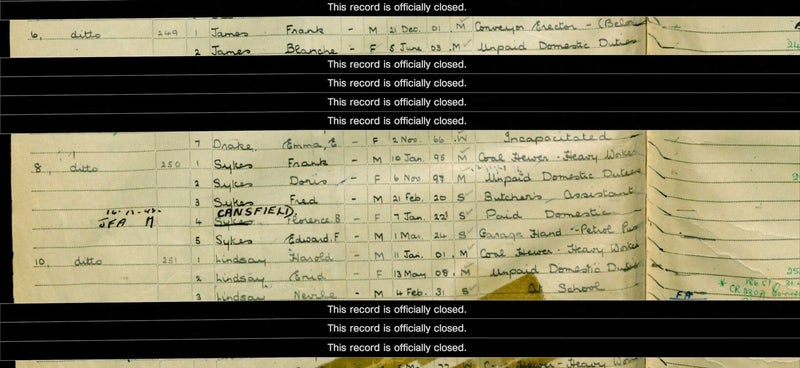 This record is officially closed.
6, ditto 249 1 James Frank - M 21 Dec. 01 M Conveyor Erector - (Below
2 James Blanche - F 5 June 03 M Unpaid Domestic Duties
This record is officially closed.
This record is officially closed.
This record is officially closed.
This record is officially closed.
7 Drake, Emma, E - F 2 Nov. 66 W Incapacitated
8, ditto 250 1 Sykes Frank - M 10 Jan. 95 M Coal Hewer - Heavy Worker
2 Sykes Doris - F 6 Nov. M Unpaid Domestic Duties
3 Sykes Fred - M 21 Feb. 20 S Butcher's Assistant
CANSFIELD
4 Sykes Florence B - F 7 Jan. 22 S Paid Domestic
JFA M
5 Sykes Edward. F - M 1 Mar. 24 S Garage Hand - Petrol
10, ditto 251 1 Lindsay Harold - M 11 Jan. 01 M Coal Hewer - Heavy Worker
2 Lindsay Enid - F 13 May 08 M Unpaid Domestic Duties
3 Lindsay Neville - M 4 Feb. 31 S At School
This record is officially closed.
This record is officially closed.
This record is officially closed.